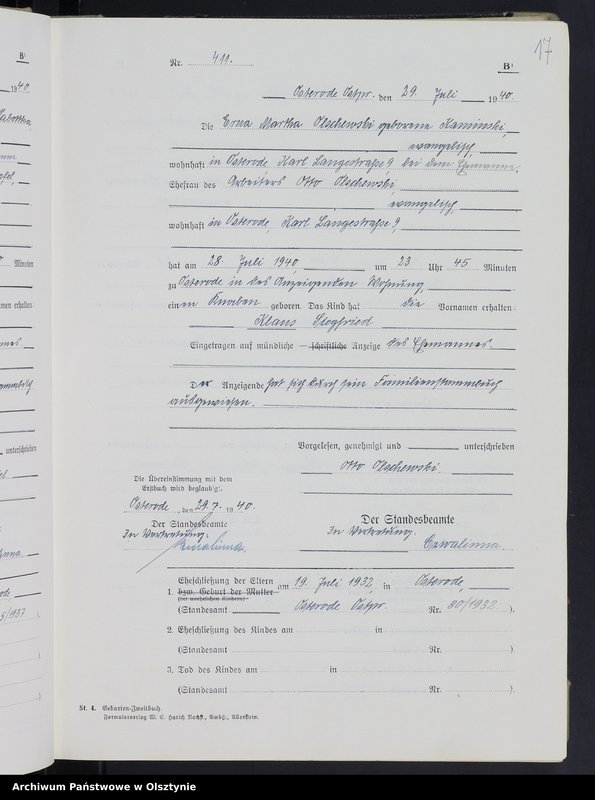 17
Nr. 411. B¹
Osterode Ostpr. den 29. Juli 1940.
Die Erna Martha Olschewski geborene Kaminski,
evangelisch,
wohnhaft in Osterode, Karl Langestraße 9 bei dem Ehemanne,
Ehefrau des Arbeiters Otto Olschewski,
evangelisch,
wohnhaft in Osterode, Karl Langestraße 9,
hat am 28. Juli 1940, um 23 Uhr 45 Minuten
zu Osterode in des Anzeigenden Wohnung
einen Knaben geboren. Das Kind hat die Vornamen erhalten:
Klaus Siegfried
Eingetragen auf mündliche schriftliche Anzeige des Ehemannes.
Der Anzeigende hat sich durch sein Familienstammbuch
ausgewiesen.
Vorgelesen, genehmigt und unterschrieben
Otto Olschewski
Die Übereinstimmung mit dem
Erstbuch wird beglaubigt.
Osterode, den 29. 7. 1940.
Der Standesbeamte
In Vertretung:
Der Standesbeamte
In Vertretung.
Czwalinna
Eheschließung der Eltern am 19. Juli 1932 in Osterode,
1. bzw. Geburt der Mutter
(bei unehelichen Kindern)
(Standesamt Osterode Ostpr. Nr. 80/1932 ).
2. Eheschließung des Kindes am in
(Standesamt Nr. ).
3. Tod des Kindes am in
(Standesamt Nr. ).
St. 4. Geburten-Zweitbuch.
Formularverlag W. E. Harich Nachf., GmbH., Allenstein.
Archiwum Państwowe w Olsztynie